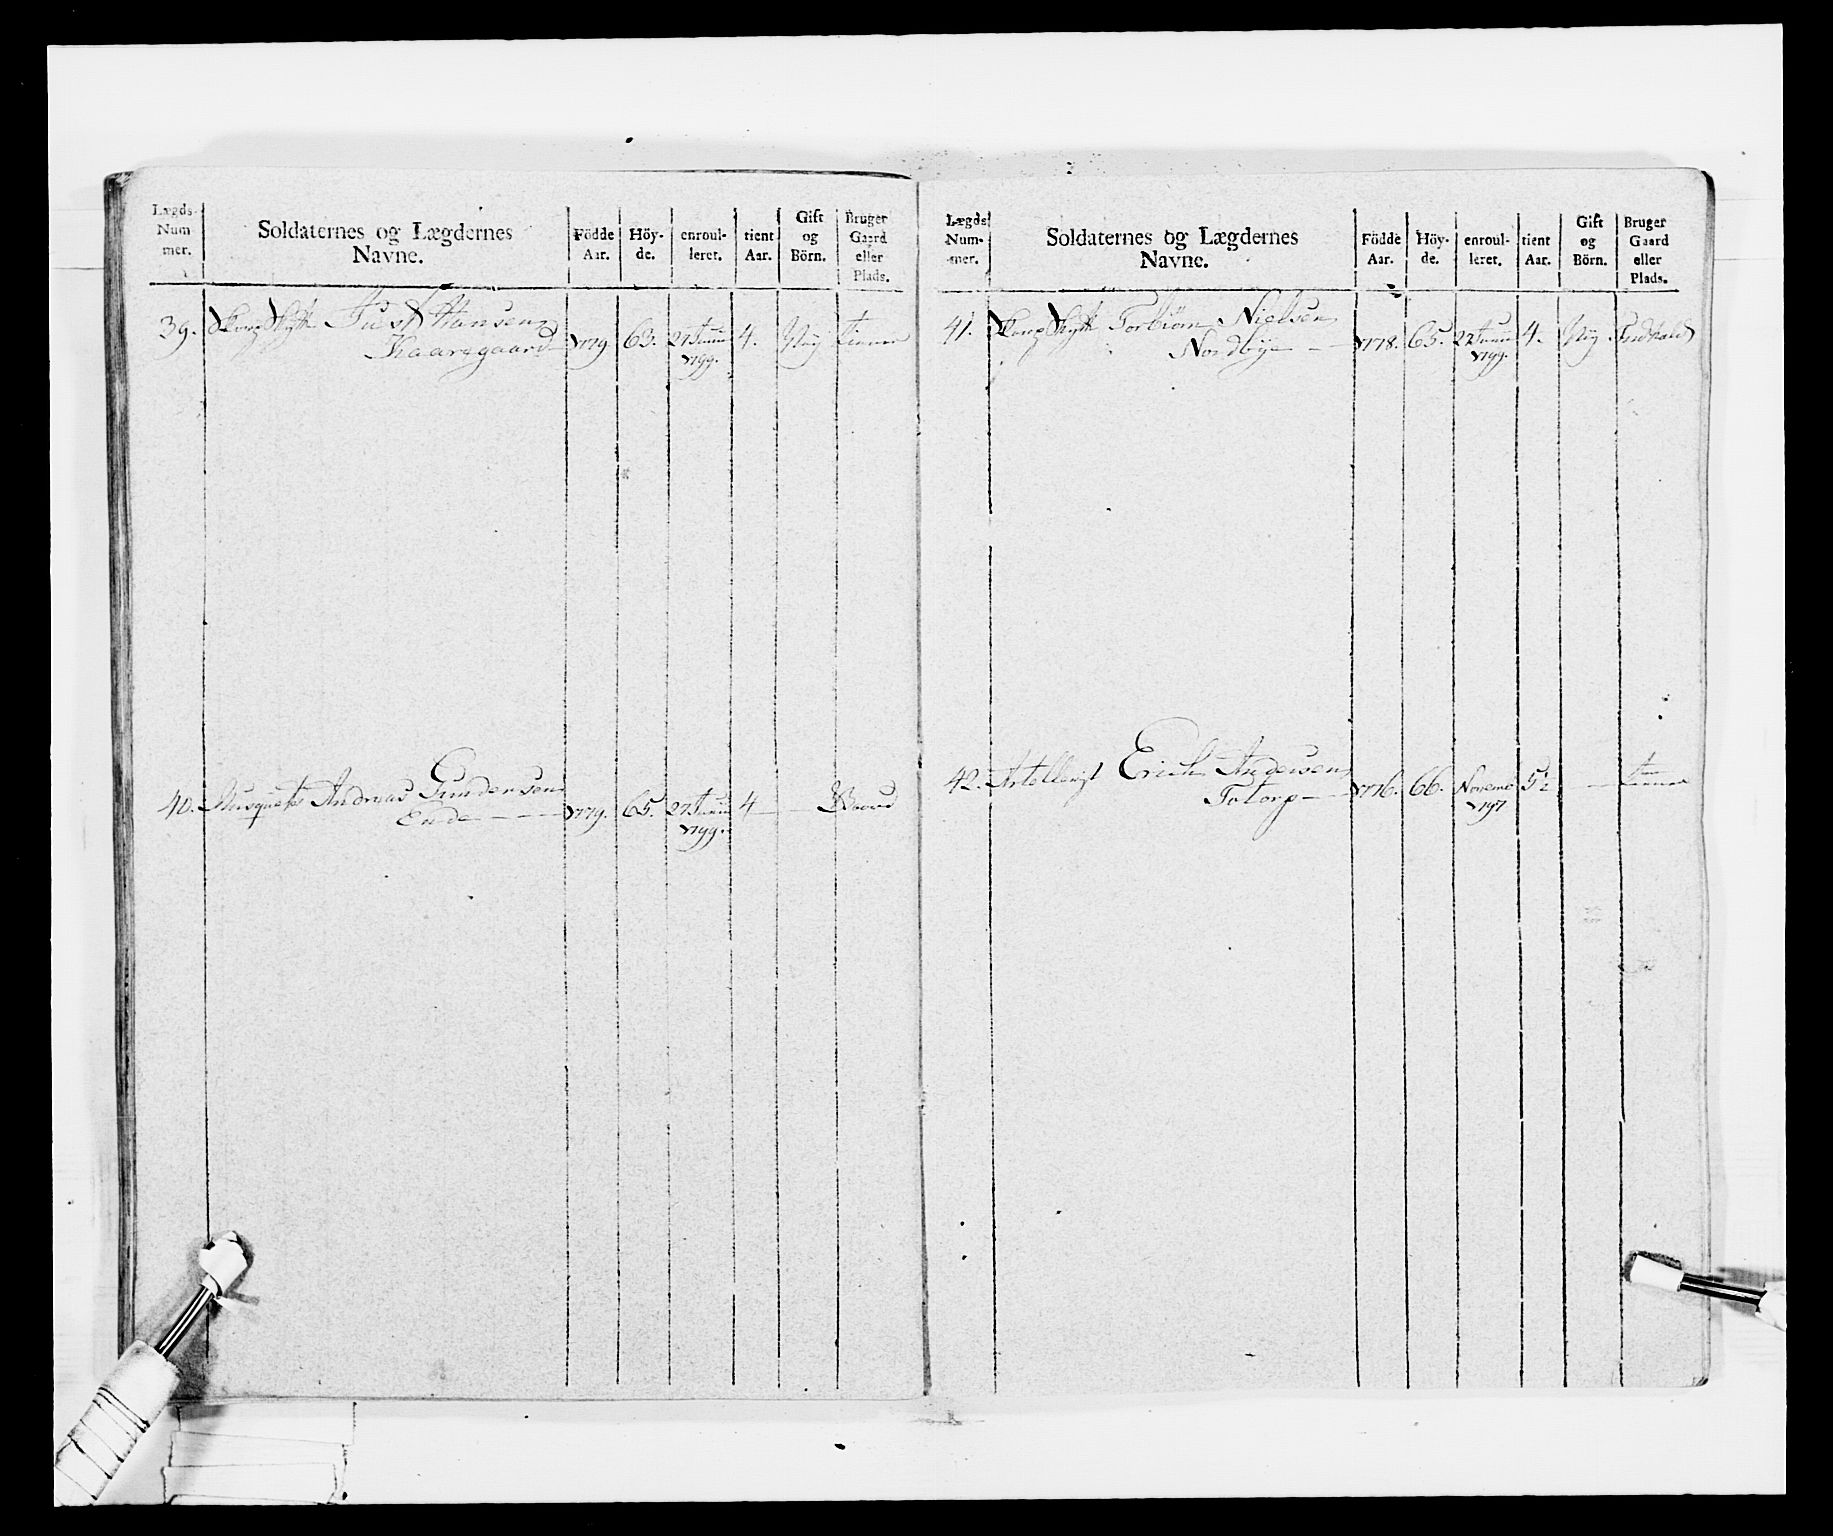 Lægds-
Num
mer.
Soldaternes og Lægdernes
Navne.
Födde
Aar.
Höy-
de.
enroul-
leret.
tient
Aar.
Gift
og
Börn.
Bruger
Gaard
eller
Plads.
39. Just Hansen
Kaaregaard 1779 63. 27 Junii 4. Nÿ tienner
1799.
40. Musquetr Andreas Gundersen
Ende 1779. 65. 27 Junii 4
1799.
Lægds
Num-
mer.
Soldaternes og Lægdernes
Navne.
Födde
Aar.
Höy-
de.
enroul-
leret.
tient
Aar.
Gift
og
Börn.
Bruger
Gaard
eller
Plads.
41. Torbiörn Nielsen
Nordbye 1778. 65. 27 Junii 4. Nÿ
1799.
42. Artellerist Erich Andersen
Totorp 1776. 66. Novemb 5½ tienner
1797